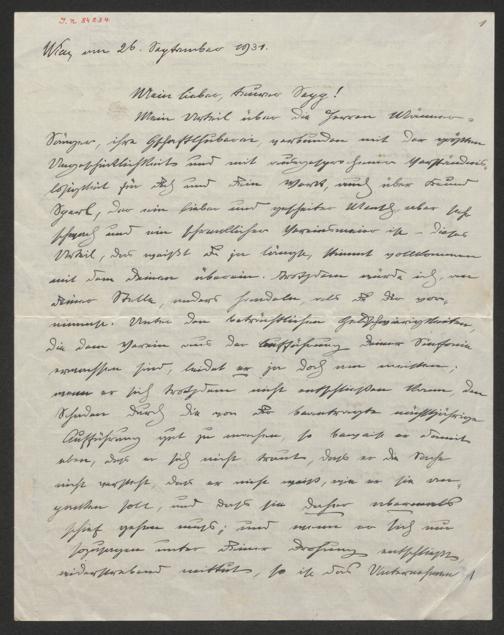 I. N. 84234
1
Wien, am 26. September 1931.
Mein lieber, teurer Sepp!
Mein Urteil über die Herren Männer-
Sänger, ihre Geschaftlhuberei, verbunden mit der größten
Ungeschicklichkeit und mit ausgesprochener Verständnis-
losigkeit für Dich und Dein Werk, auch über Freund
der ein lieber und gescheiter Mensch, aber sehr
schwach und ein schrecklicher Vereinsmeier ist – dieses
Urteil, das weißt Du ja längst, stimmt vollkommen
mit dem Deinen überein. Trotzdem würde ich, an
Deiner Stelle, anders handeln, als Du Dir vor-
nimmst. Unter den beträchtlichen Geldschwierigkeiten,
die dem Verein aus der Aufführung Deiner Sinfonie
erwachsen sind, leidet er ja doch am meisten;
wenn er sich trotzdem nicht entschließen kann, den
Schaden durch die von Dir beantragte nächstjährige
Aufführung gut zu machen, so beweist er damit
eben, daß er sich nicht traut, daß er die Sache
nicht versteht, daß er nicht weiß, wie er sie an-
packen soll, und daß sie daher abermals
schief gehen muß; und wenn er sich nun
sozusagen unter Deiner Drohung entschließt,
widerstrebend mittut, so ist das Unternehmen